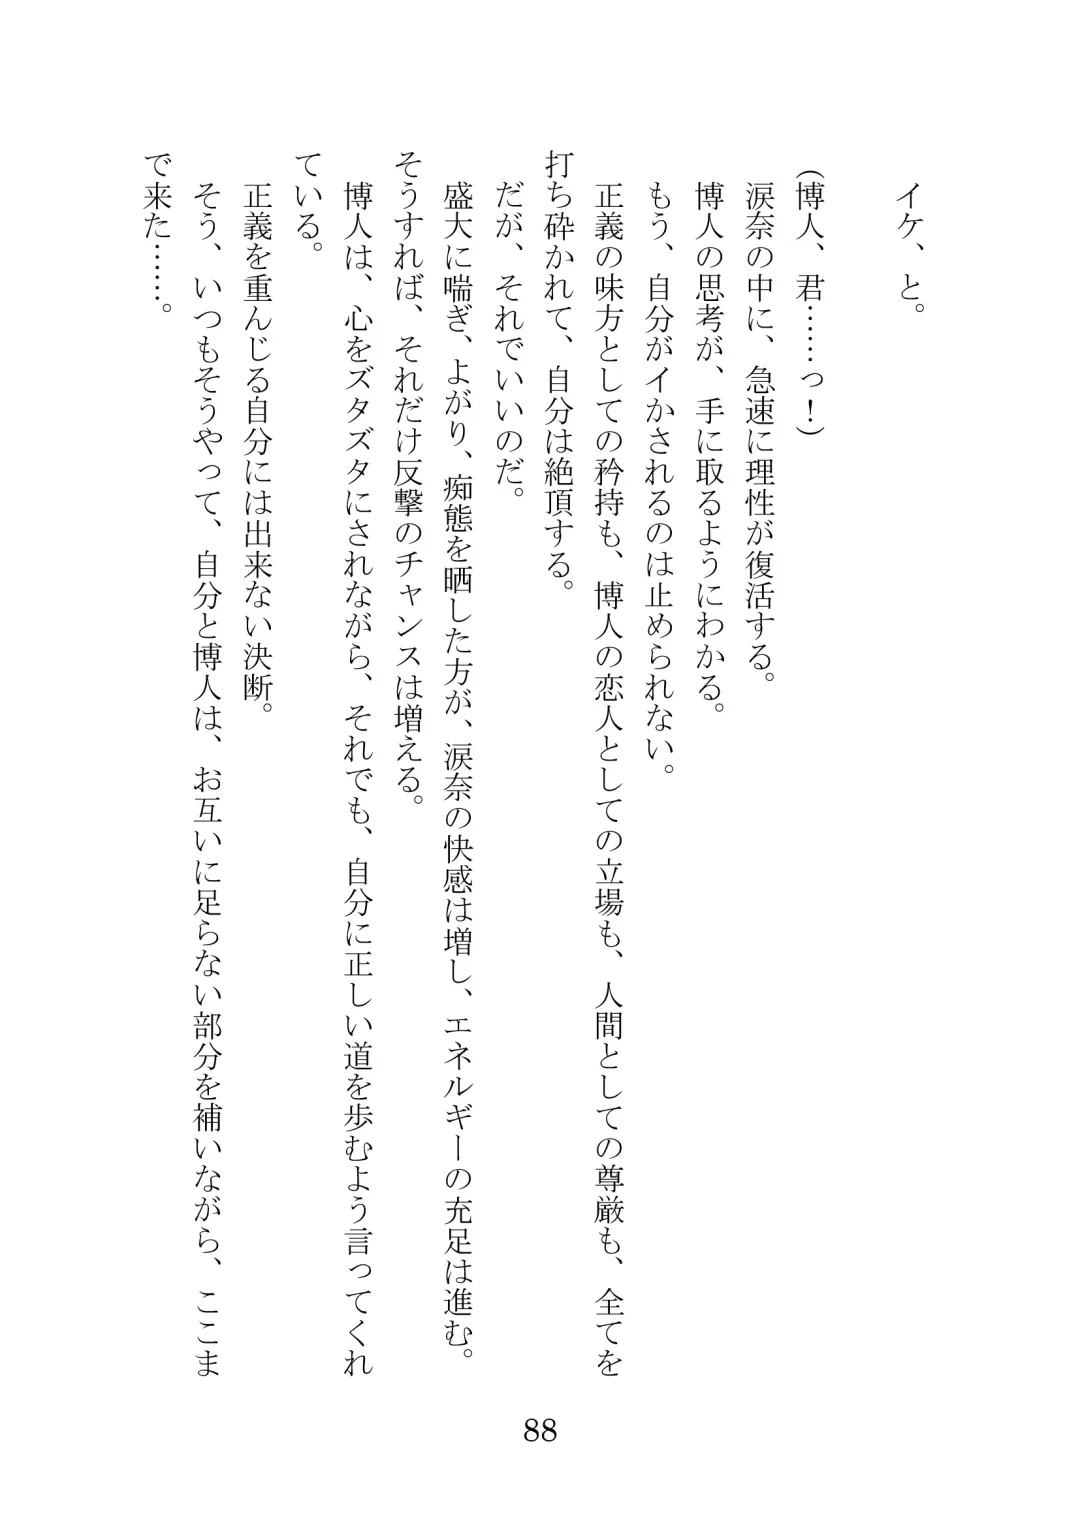 イケ、と。
（博人、君……っ！）
涙奈の中に、急速に理性が復活する。
博人の思考が、手に取るようにわかる。
もう、自分がイかされるのは止められない。
正義の味方としての矜持も、博人の恋人としての立場も、人間としての尊厳も、全てを
打ち砕かれて、自分は絶頂する。
だが、それでいいのだ。
盛大に喘ぎ、よがり、痴態を晒した方が、涙奈の快感は増し、エネルギーの充足は進む。
そうすれば、それだけ反撃のチャンスは増える。
博人は、心をズタズタにされながら、それでも、自分に正しい道を歩むよう言ってくれ
ている。
正義を重んじる自分には出来ない決断。
そう、いつもそうやって、自分と博人は、お互いに足らない部分を補いながら、ここま
で来た……。
88